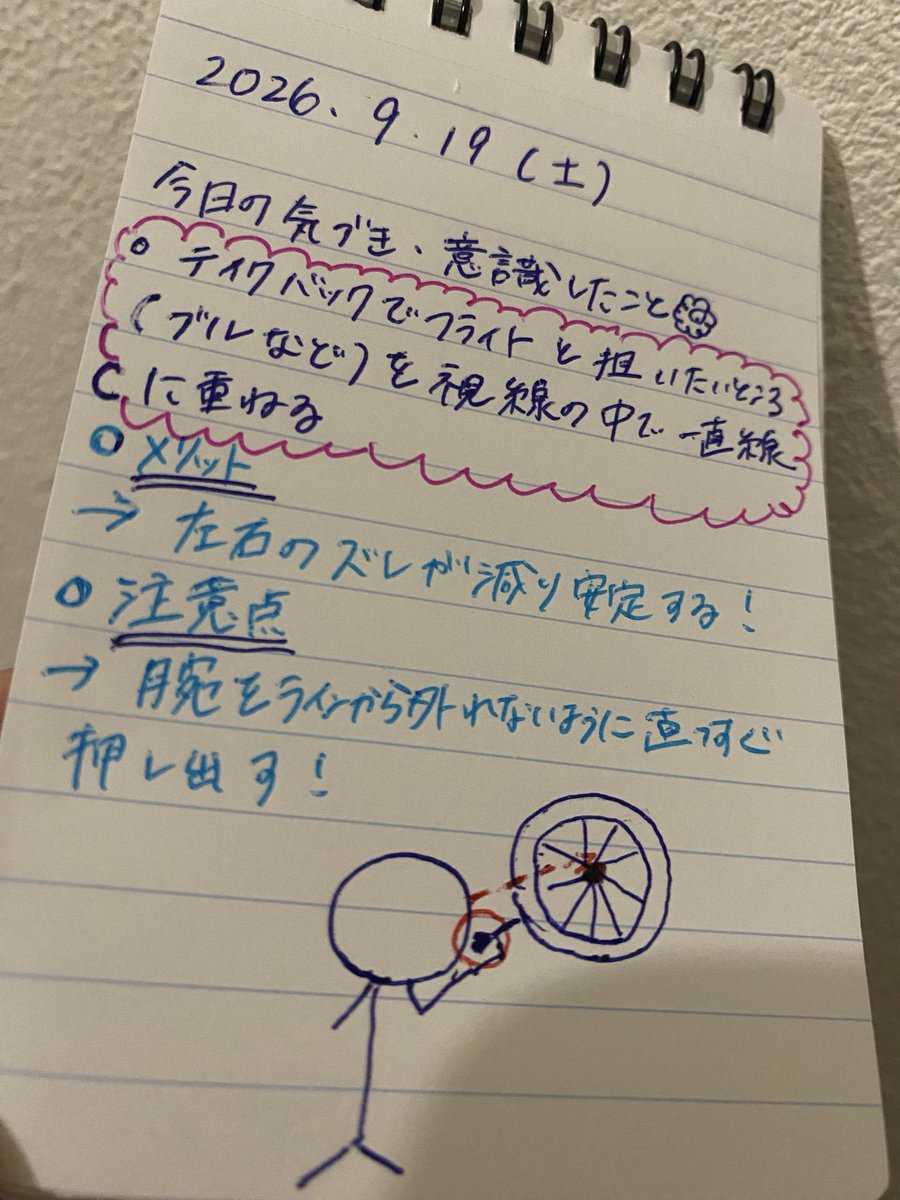 2026.9.19(土)
今日の気づき、意識したこと
○ テイクバックでフライトと担いたいところ
(ブルなど)を視線の中で一直線
に重ねる
○ メリット
→ 左右のズレが減り安定する!
○ 注意点
→ 腕をラインから外れないように直っすぐ
押し出す!